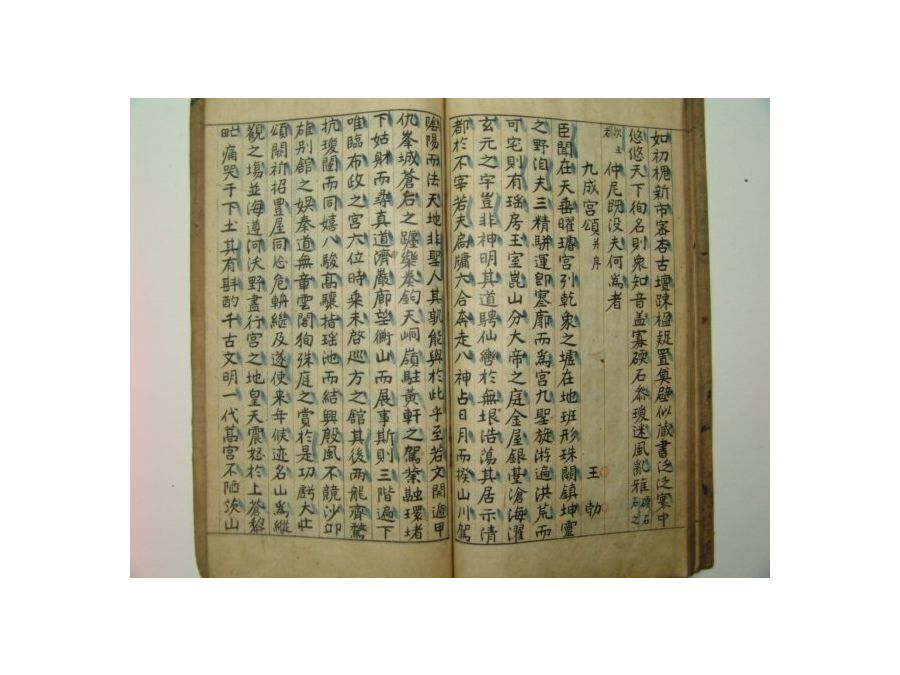 如初槐新市密杏古壇踈楹疑置奠壁似藏書泛泛寰中
悠悠天下徇名則衆知音盖寡碝石參瓊迷風亂雅碝石石之
次玉者 仲尼既没夫何為者
九成宫頌并序 王勃
臣聞在天垂曜璿宫列乾象之墟在地班形珠闕鎮坤靈
之野洎夫三精騈運即寥廓而為宫九聖旋游遍洪荒而
可宅則有瑶房玉室崑山分大帝之庭金屋銀臺滄海濯
玄元之宇豈非神明其道騁仙轡於無垠浩蕩其居示清
都於不宰若夫扃牖六合奔走八神占日月而揆山川駕
陰陽而法天地非聖人其孰能與於此乎至若文開遁甲
仇峯城蒼右之躔樂奏鈞天峒嶺駐黃軒之駕榮融環堵
下姑射而尋真道濟嚴廊望衡山而展事斯則三階遍下
唯臨布政之宫六位時乘未啓巡方之館其後两龍齊騖
抗瓊閨而同嬉八駿髙驤指瑶池而結興殷風不競沙卬
雄别舘之娱秦道無章雲閣徇殊庭之賞於是功虧大壯
頌闕祈招豐屋同心危輈繼及遂使来年候迹名山為縱
觀之塲並海遵河沃野盡行宫之地皇天震怒於上蒼黎
痛哭于下土其有斟酌千古文明一代髙宫不陋茨山